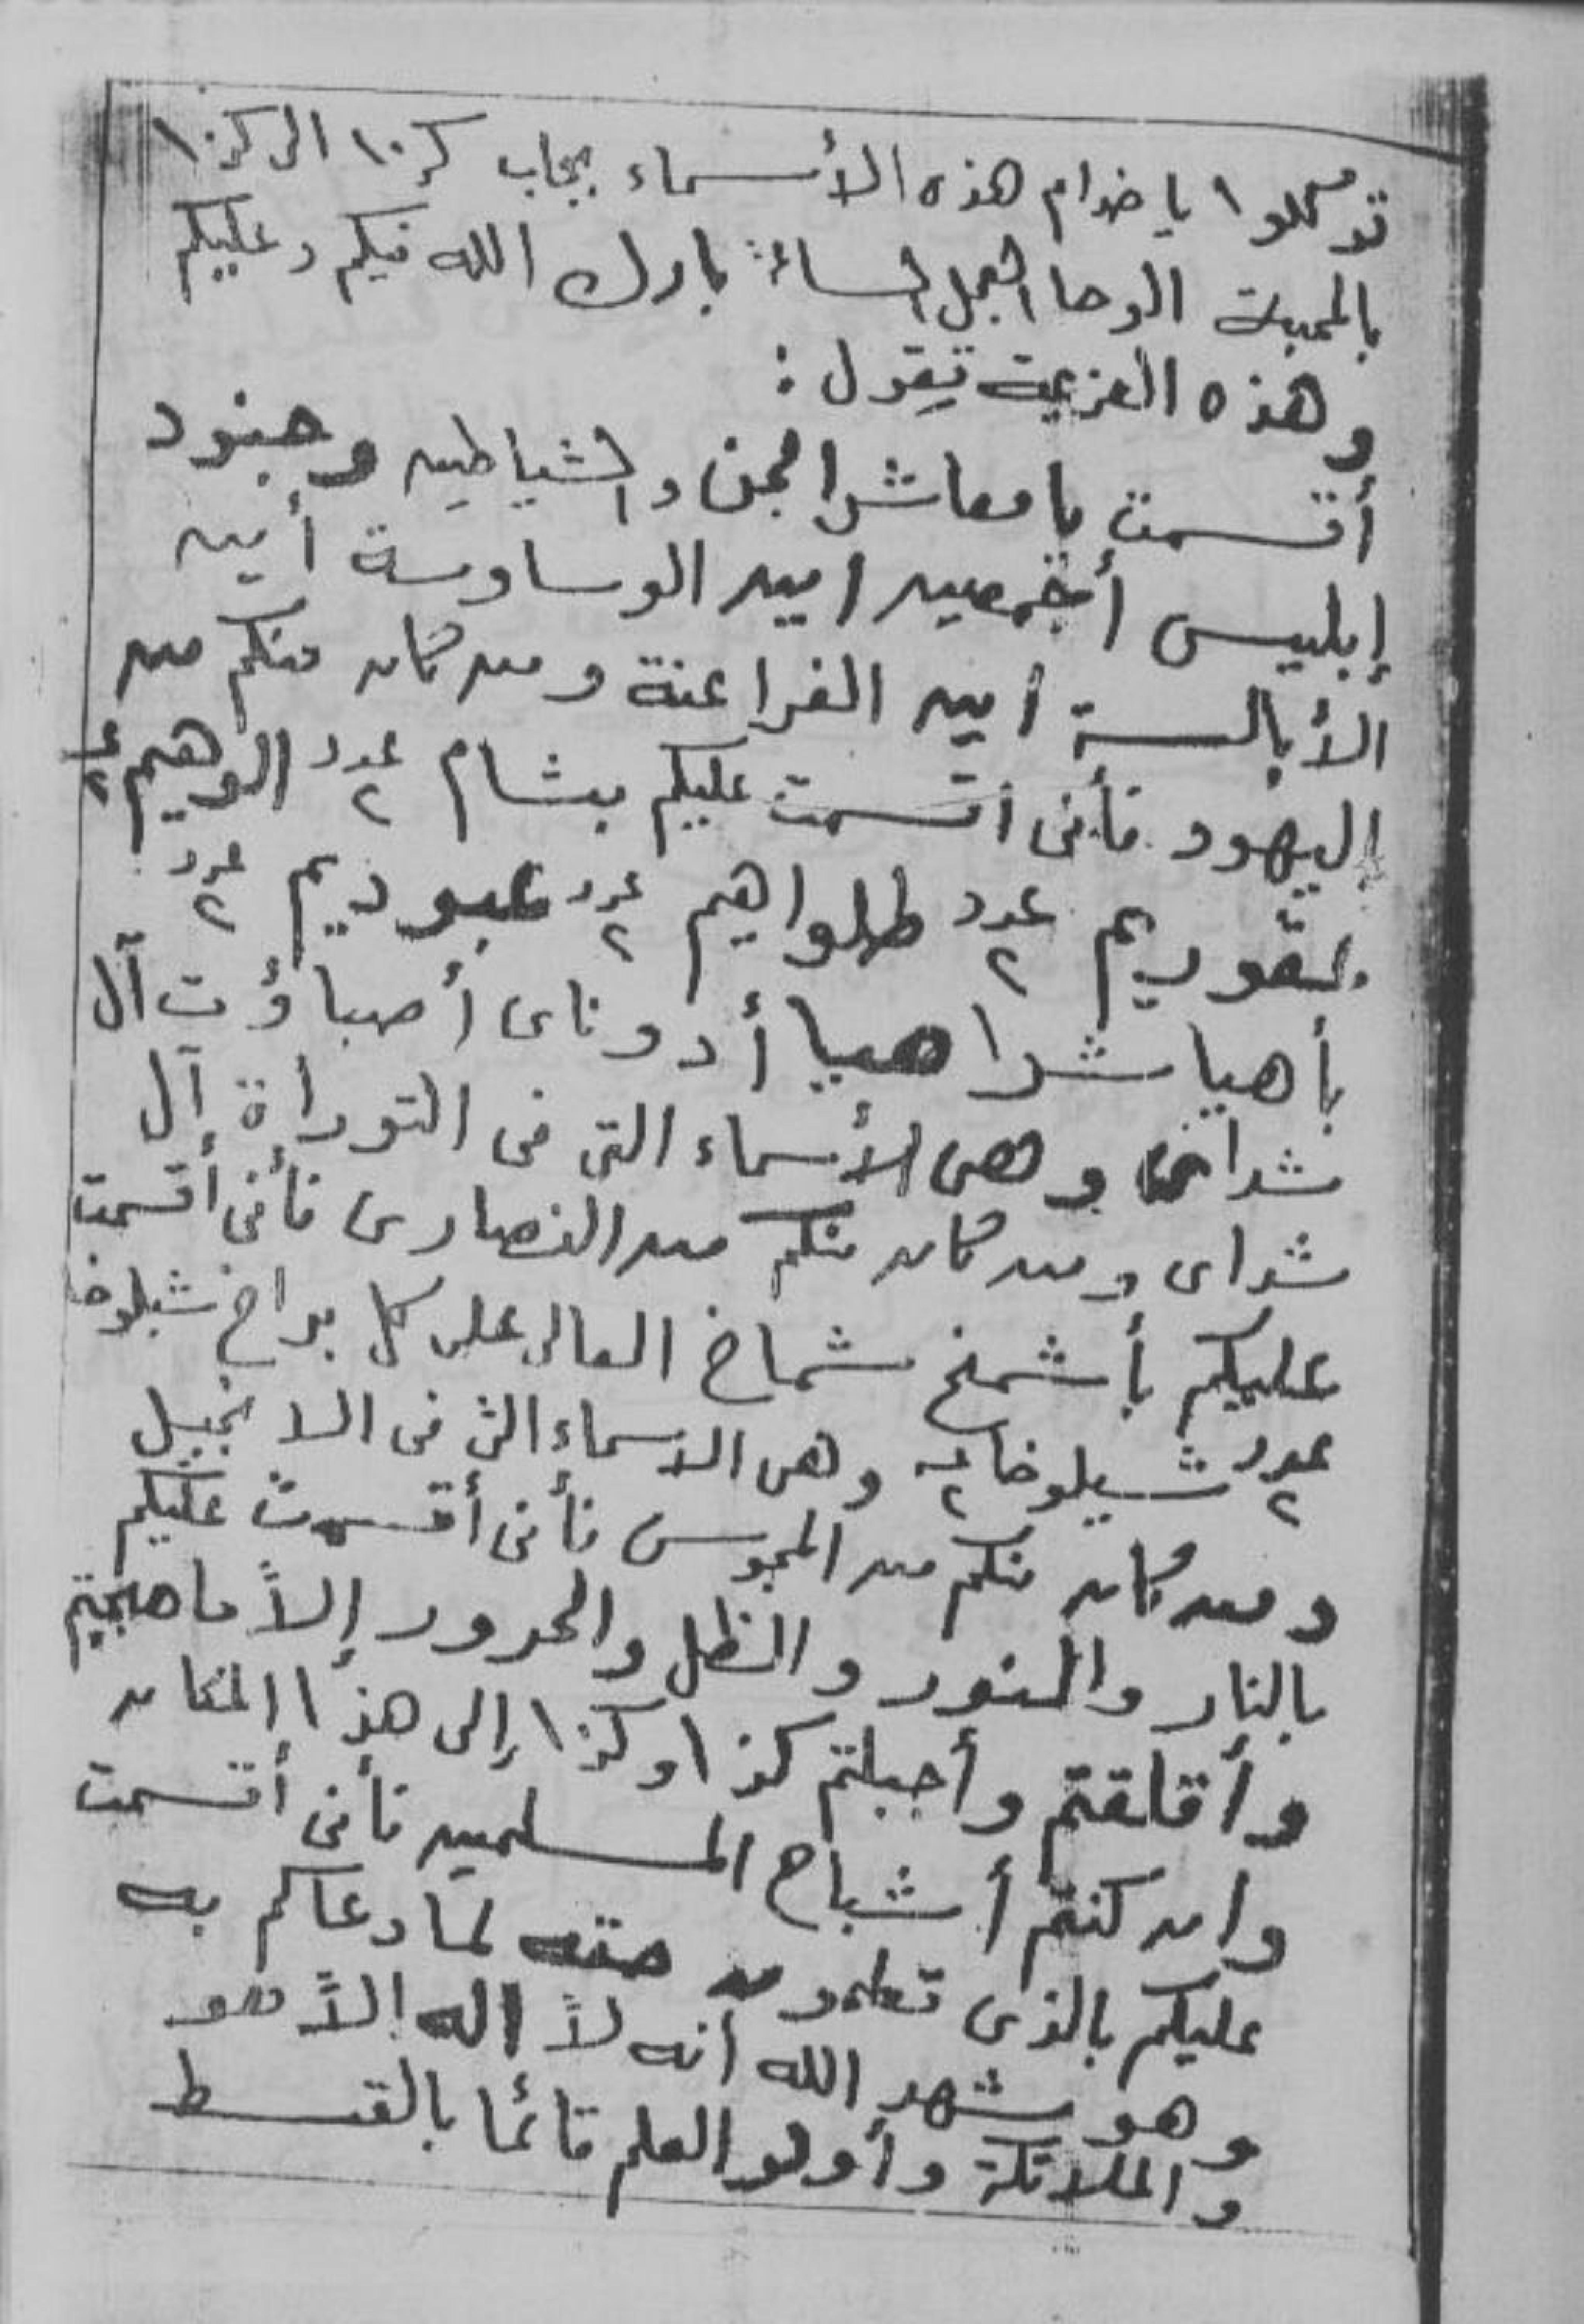 توكلوا يا خدام هذه الأسماء بجلب كذا الى كذا
بالمحبة الوحا العجل الساعة بارك الله فيكم وعليكم
وهذه العزيمة تقول :
أقسمت يا معاشر الجن والشياطين وجنود
إبليس أجمعين اين الوساوسة أين
الأبالسة اين الفراعنة ومن كان منكم من
اليهود فأنى أقسمت عليكم بشام عدد ٢ الوهيم عـ ٢
بقوريم عدد ٢ طلواهيم عدد ٢ عبوديم عدد ٢
بأهيا شراهيا أدوناى أصباؤت آل
وهى الأسماء التى فى التوراة آل
شداى ومن كان منكم من النصارى فأنى أقسمت
عليكم بأشمخ شماخ العالى على كل براخ شيلوخا
عدد ٢ شيلوخا عـ ٢ وهى الاسماء التى فى الانجيل
ومن كان منكم من المجوس فأنى أقسمت عليكم
بالنار والنور والظل والحرور إلا ما هيجتم
وأقلقتم وأجبلتم كذا وكذا إلى هذا المكان
وان كنتم أشباح المسلمين فأنى أقسمت
عليكم بالذى تعلمون حقه لما دعاكم به
وهو شهد الله انه لا اله الا هو
والملائكة وأولو العلم قائما بالقسط